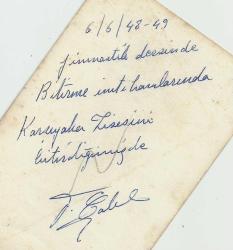 6/6/48-49
jimnastik dersinde
Bitirme imtihanlarında
Karşıyaka Lisesini
bitirdiğimizde